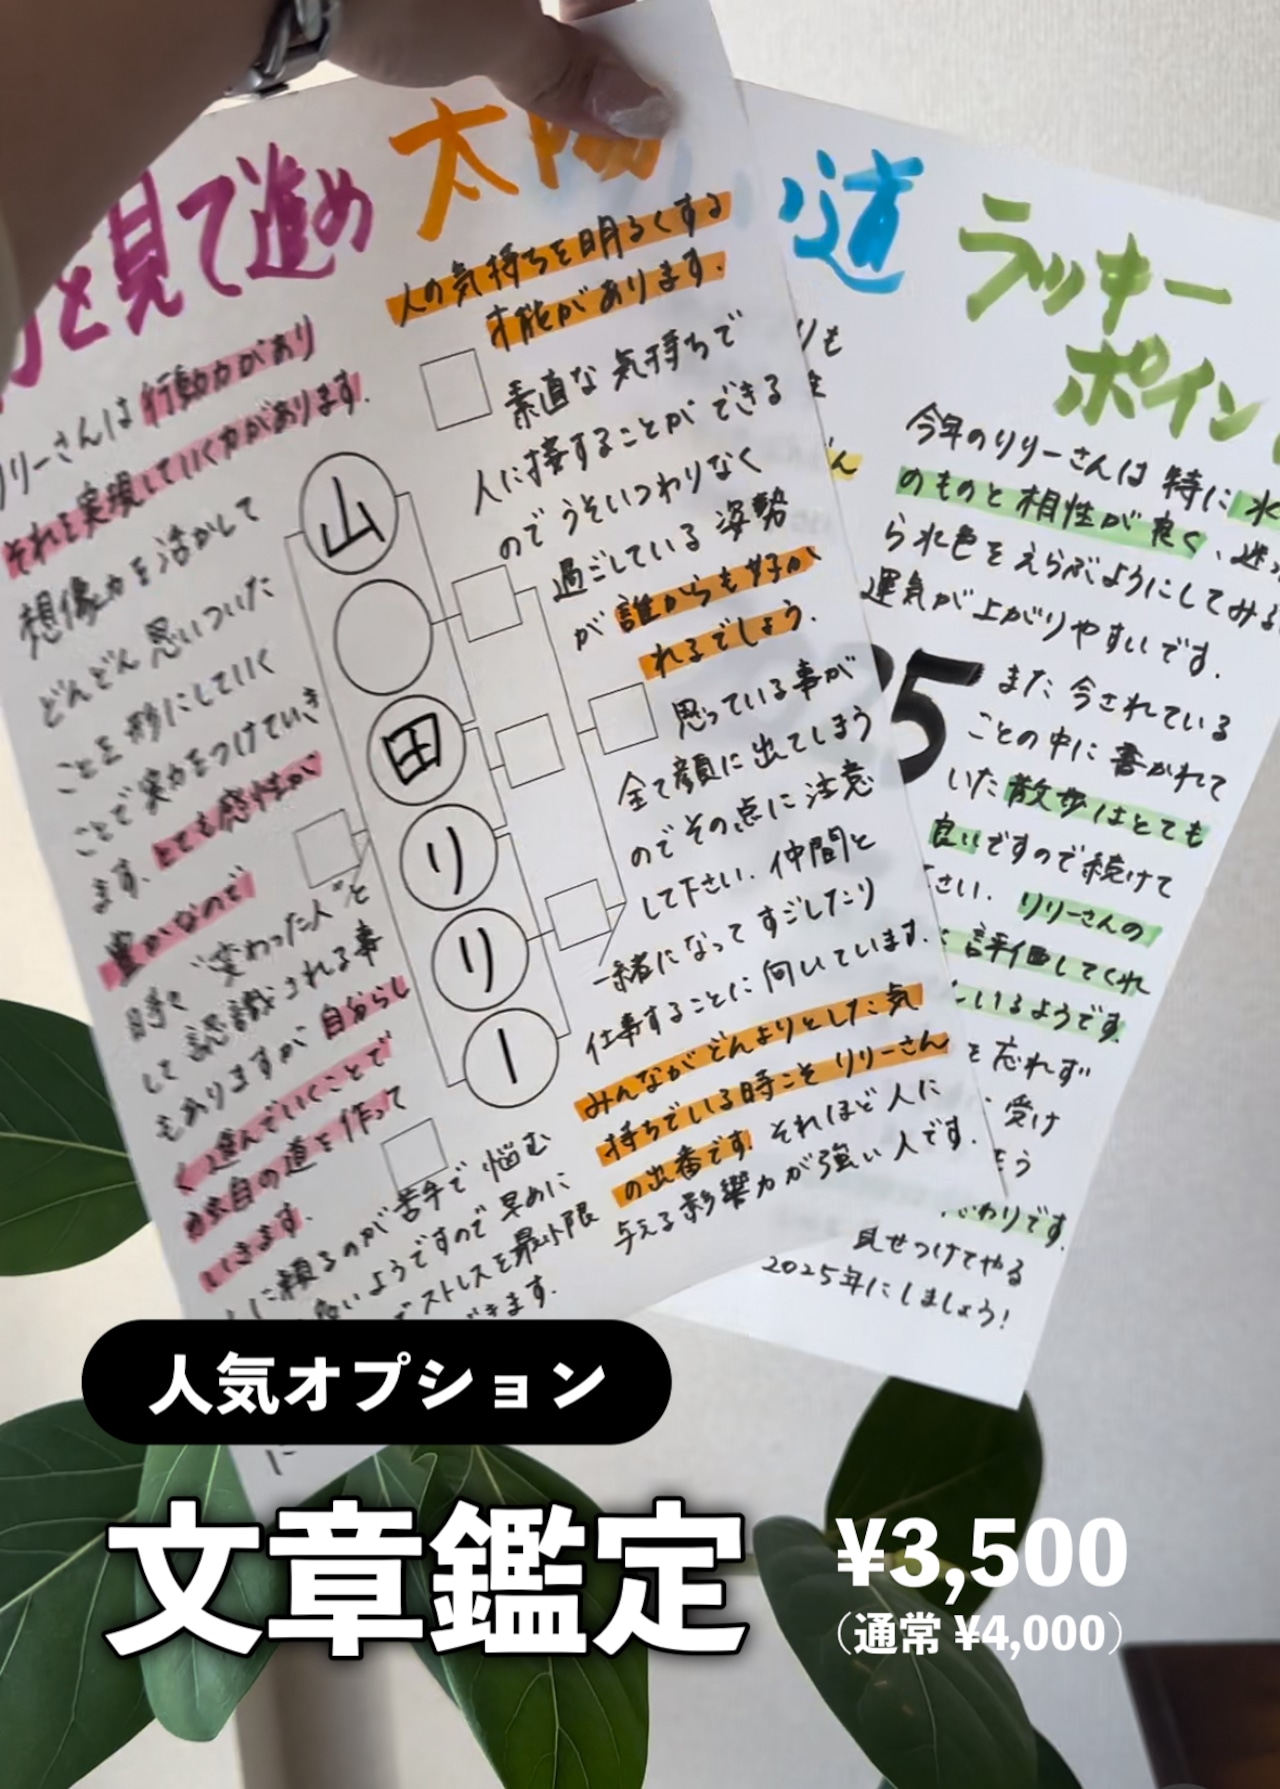 を見て進め
リリーさんは行動力があり
それを実現していく力があります.
想像力を活かして
どんどん思いついた
ことを形にしていく
ことで実力をつけていき
ます. とても感性が
豊かなので
時々“変わった人”と
して認識される事
もありますが自分らし
く進んでいくことで
独自の道を作って
いきます.
に頼るのが苦手で悩む
多いようですので早めに
でストレスを最小限
できます.
に
山
田
リ
リ
ー
太陽
人の気持ちを明るくする
才能があります.
素直な気持ちで
人に接することができる
のでうそいつわりなく
過ごしている姿勢
が誰からも好か
れるでしょう.
思っている事が
全て顔に出てしまう
のでその点に注意
して下さい. 仲間と
一緒になってすごしたり
仕事することに向いています.
みんながどんよりとした気
持ちでいる時こそリリーさん
の出番です. それほど人に
与える影響力が強い人です.
い道
りも
ん
5
ラッキー
ポイン
今年のリリーさんは特に水
のものと相性が良く、迷っ
ら水色をえらぶようにしてみる
運気が上がりやすいです.
また今されている
ことの中に書かれて
いた散歩はとても
良いですので続けて
さい. リリーさんの
評価してくれ
いるようです.
を忘れず
受け
う
わりです.
見せつけてやる
2025年にしましょう!
人気オプション
文章鑑定
¥3,500
（通常 ¥4,000）